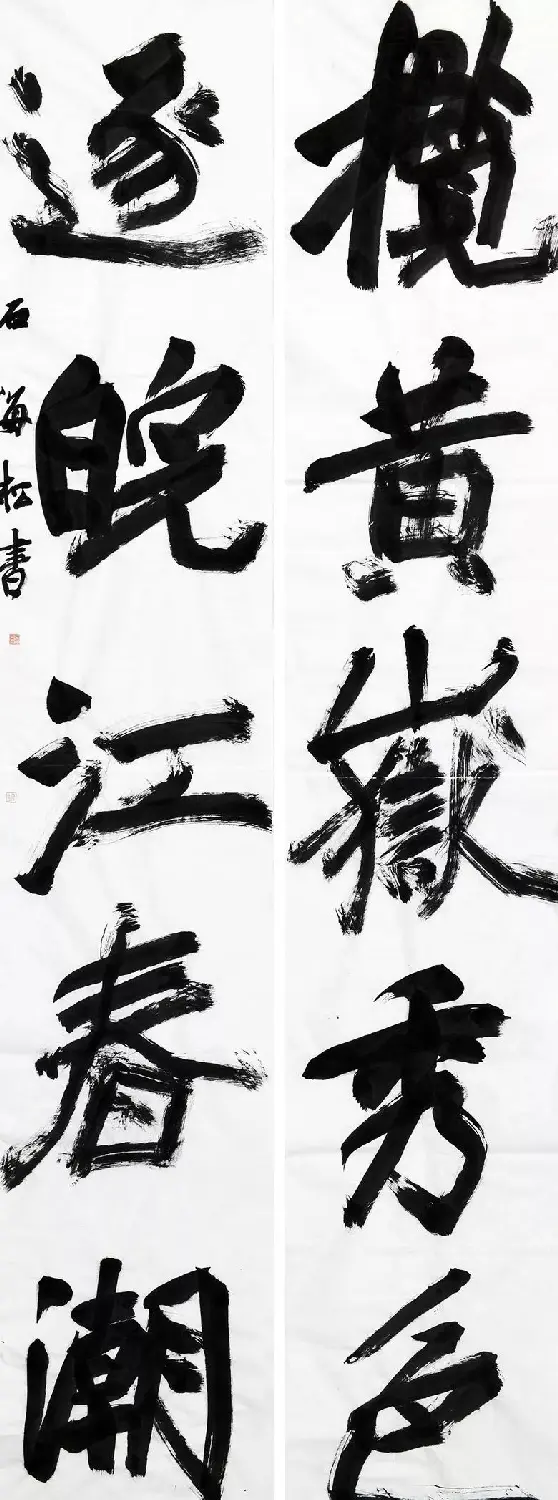 攬黄嶽秀色
逐皖江春潮
石海松書